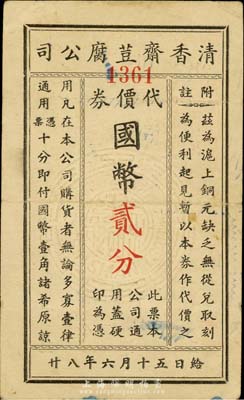 清香齋荳腐公司
1361
代價券
國幣貳分
附註
茲為滬上銅元缺乏無從兌取刻
為便利起見暫以本券作代價之
用凡在本公司購貨者無論多寡壹律
通用憑票十分即付國幣壹角諸希原諒
此票本
公司通
用蓋硬
印為憑
廿八年六月十五日給